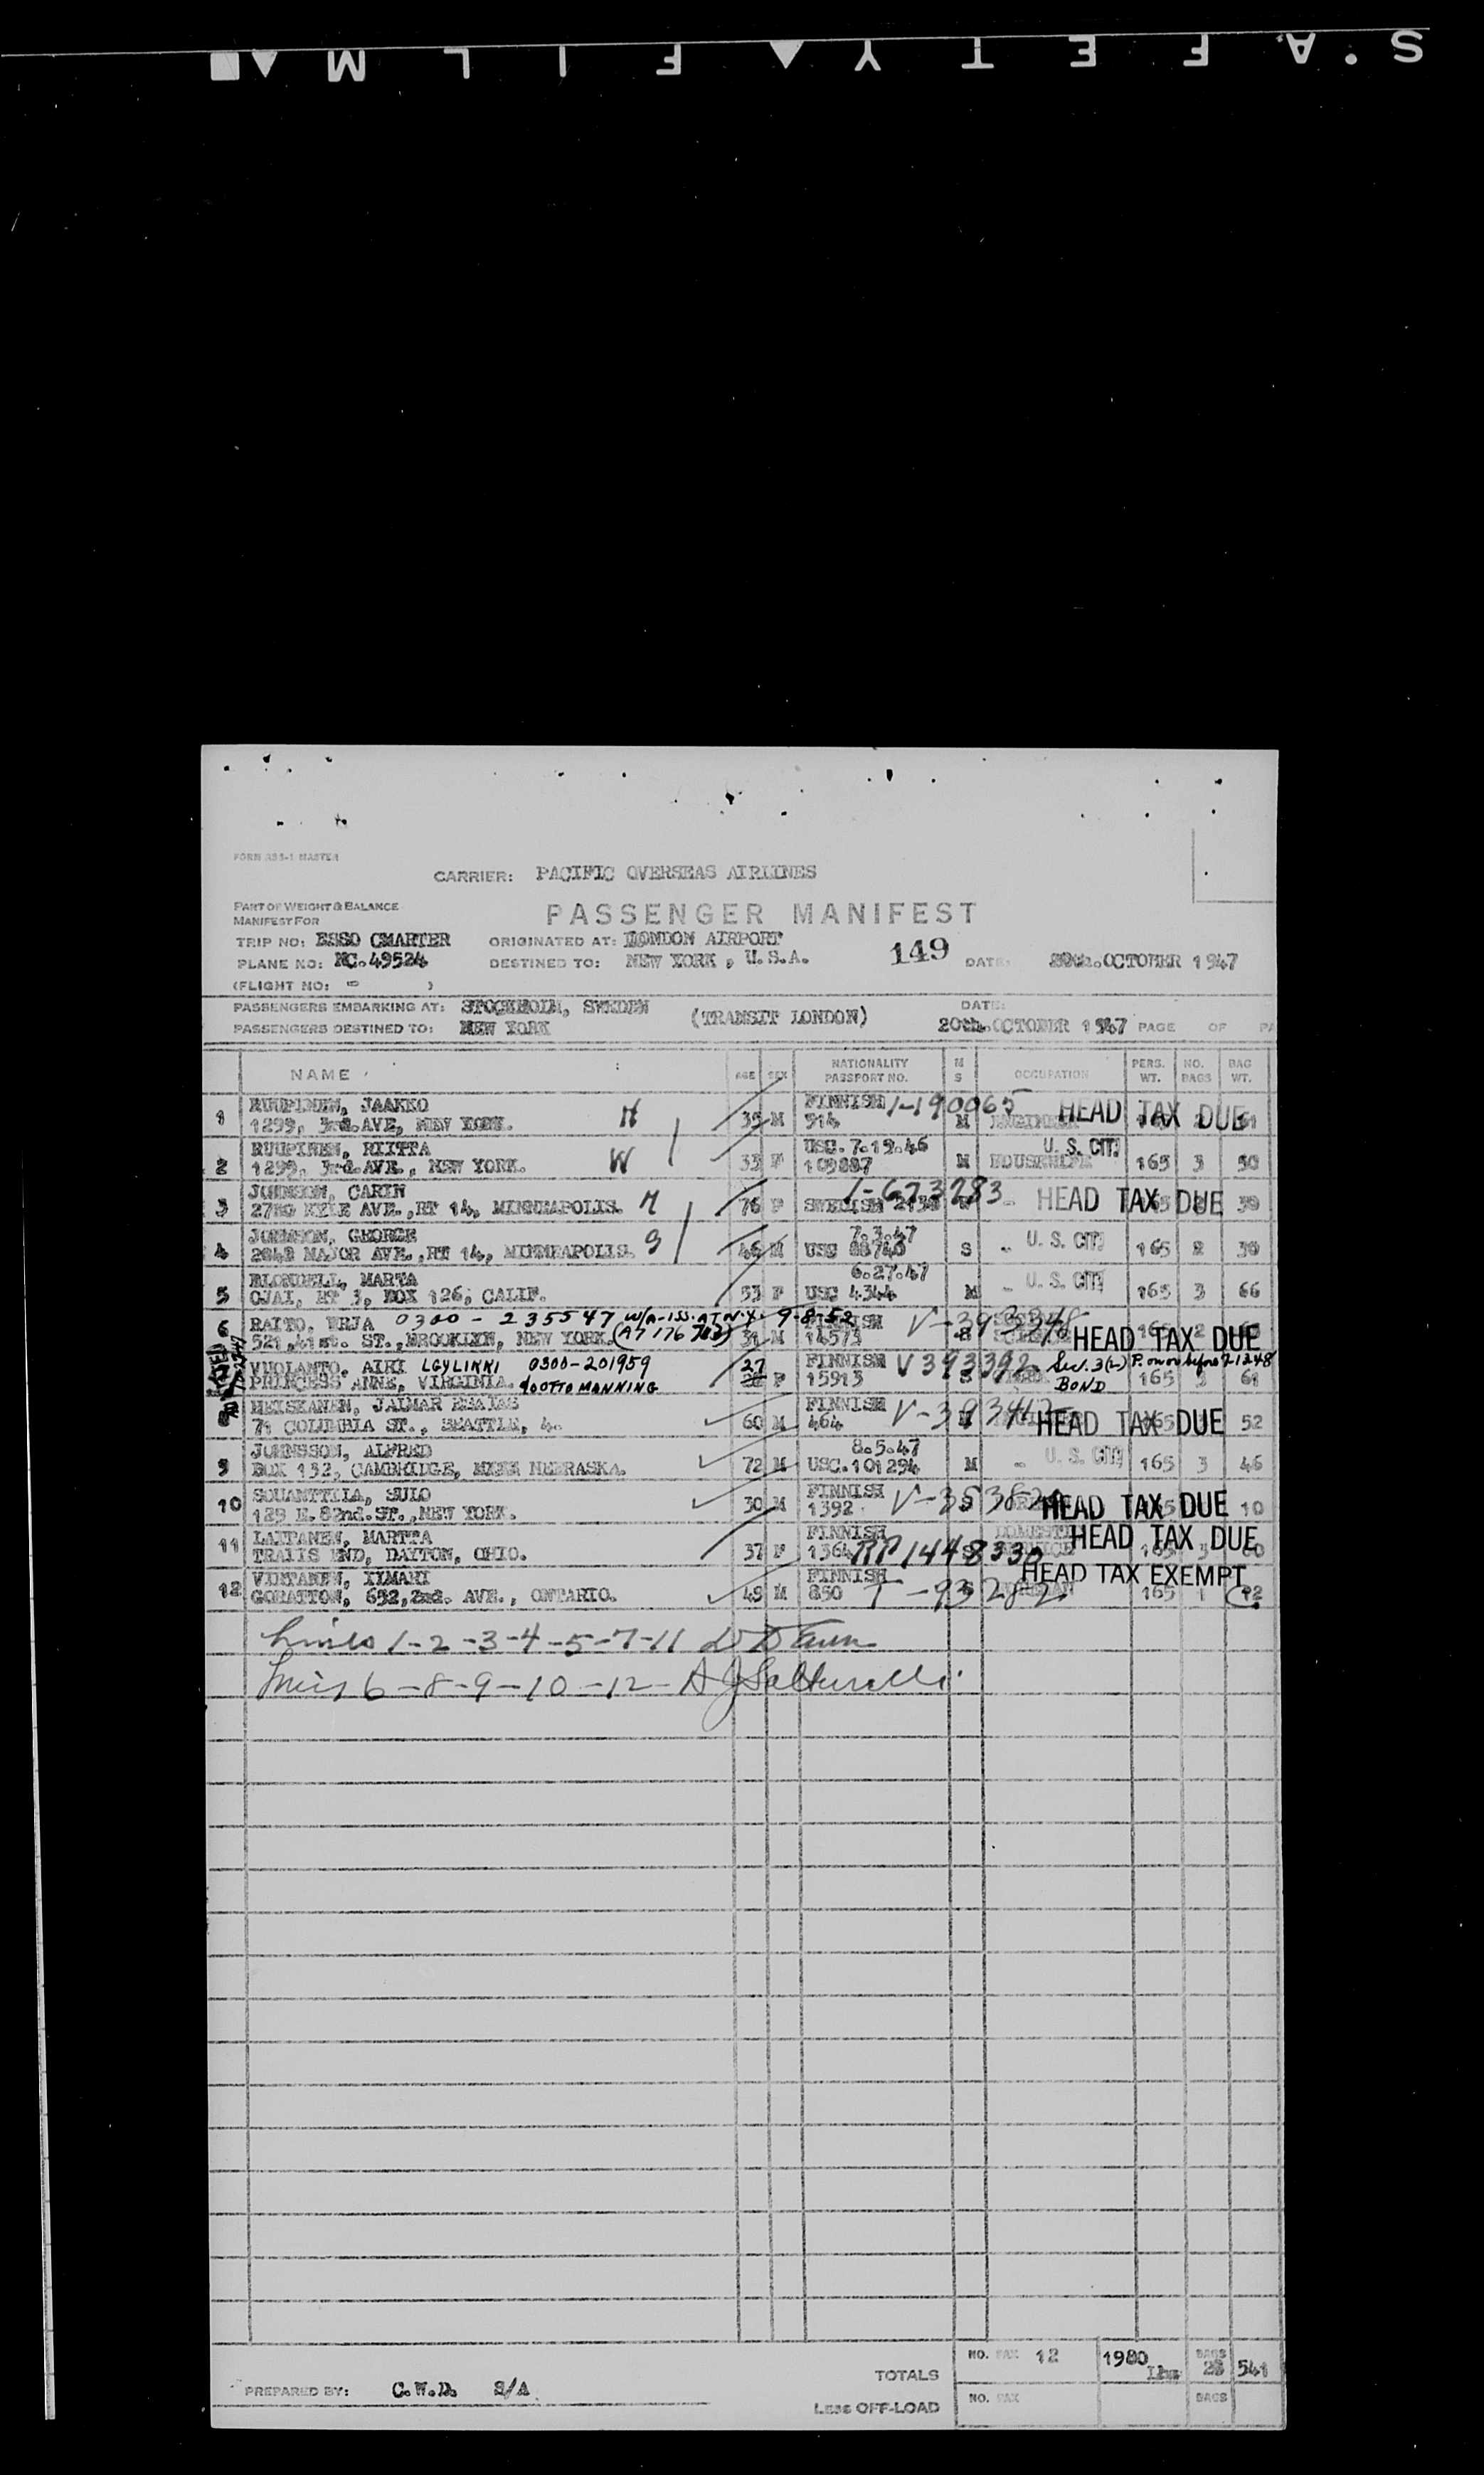 SAFETY FILM
FORM ASS-1 MASTER
CARRIER: PACIFIC OVERSEAS AIRLINES
PART OF WEIGHT & BALANCE
MANIFEST FOR
PASSENGER MANIFEST
TRIP NO: ESSO CHARTER ORIGINATED AT: LONDON AIRPORT
PLANE NO: NC.49524 DESTINED TO: NEW YORK, U.S.A. 149 DATE: 20th.OCTOBER 1947
(FLIGHT NO: - )
PASSENGERS EMBARKING AT: STOCKHOLM, SWEDEN (TRANSIT LONDON) DATE:
PASSENGERS DESTINED TO: NEW YORK 20th.OCTOBER 1947 PAGE OF PA
NAME AGE SEX NATIONALITY PASSPORT NO. M S OCCUPATION PERS. WT. NO. BAGS BAG WT.
1 RUUPINEN, JAAKKO FINNISH 1-190065 HEAD TAX DUE
1299, 3rd.AVE, NEW YORK. H 35 M 514 M ENGINEER
2 RUUPINEN, RIITTA USC. 7.19.46 U. S. CIT.
1299, 3rd.AVE., NEW YORK. W 33 F 109887 M HOUSEWIFE 165 3 50
3 JOHNSON, CARIN 1-673283 HEAD TAX DUE
KYLE AVE.,RT 14, MINNEAPOLIS. M 76 F SWEDISH 39
4 JOHNSON, GEORGE 7.3.47 U. S. CIT.
MAJOR AVE.,RT 14, MINNEAPOLIS. S 46 M USC S 165 2 39
5 BLONDELL, MARTA 6.27.47 U. S. CIT.
OJAI, RT 3, BOX 126, CALIF. 53 F USC 4344 M 165 3 66
6 RAITO, ERJA 0300-235547 W/A-ISS. AT N.Y. 9-8-52 FINNISH V-393348
521,41st. ST.,BROOKLYN, NEW YORK. 31 M 14573 S HEAD TAX DUE
VUOLANTO, AIRI LGYLIKKI 0300-201959 27 FINNISH V393392 Sec. 3(2) P. on or before 2-12-48
PRINCESS ANNE, VIRGINIA. c/o OTTO MANNING F 15913 S BOND 165 61
8 HEISKANEN, JALMAR FINNISH V-393412
71 COLUMBIA ST., SEATTLE, 4. 60 M 464 HEAD TAX DUE 52
9 JOHNSSON, ALFRED 8.5.47 U. S. CIT.
BOX 132, CAMBRIDGE, NEBRASKA. 72 M USC.101294 M 165 3 46
10 SOUANTTILA, SULO FINNISH HEAD TAX DUE
129 E. 82nd. ST.,NEW YORK. 30 M 1392 S 10
11 LAITANEN, MARTTA FINNISH DOMESTIC HEAD TAX DUE
TRAILS END, DAYTON, OHIO. 37 F 1364 RP1448330
12 VIRTANEN, ILMARI FINNISH HEAD TAX EXEMPT
GORATTON, 652,2nd. AVE., ONTARIO. 49 M 850 T-93282 165 1
Lines 1-2-3-4-5-7-11
Lines 6-8-9-10-12-
TOTALS NO. PAX 12 1980 Lbs BAGS 28 541
PREPARED BY: C.W.D. S/A
LESS OFF-LOAD NO. PAX BAGS